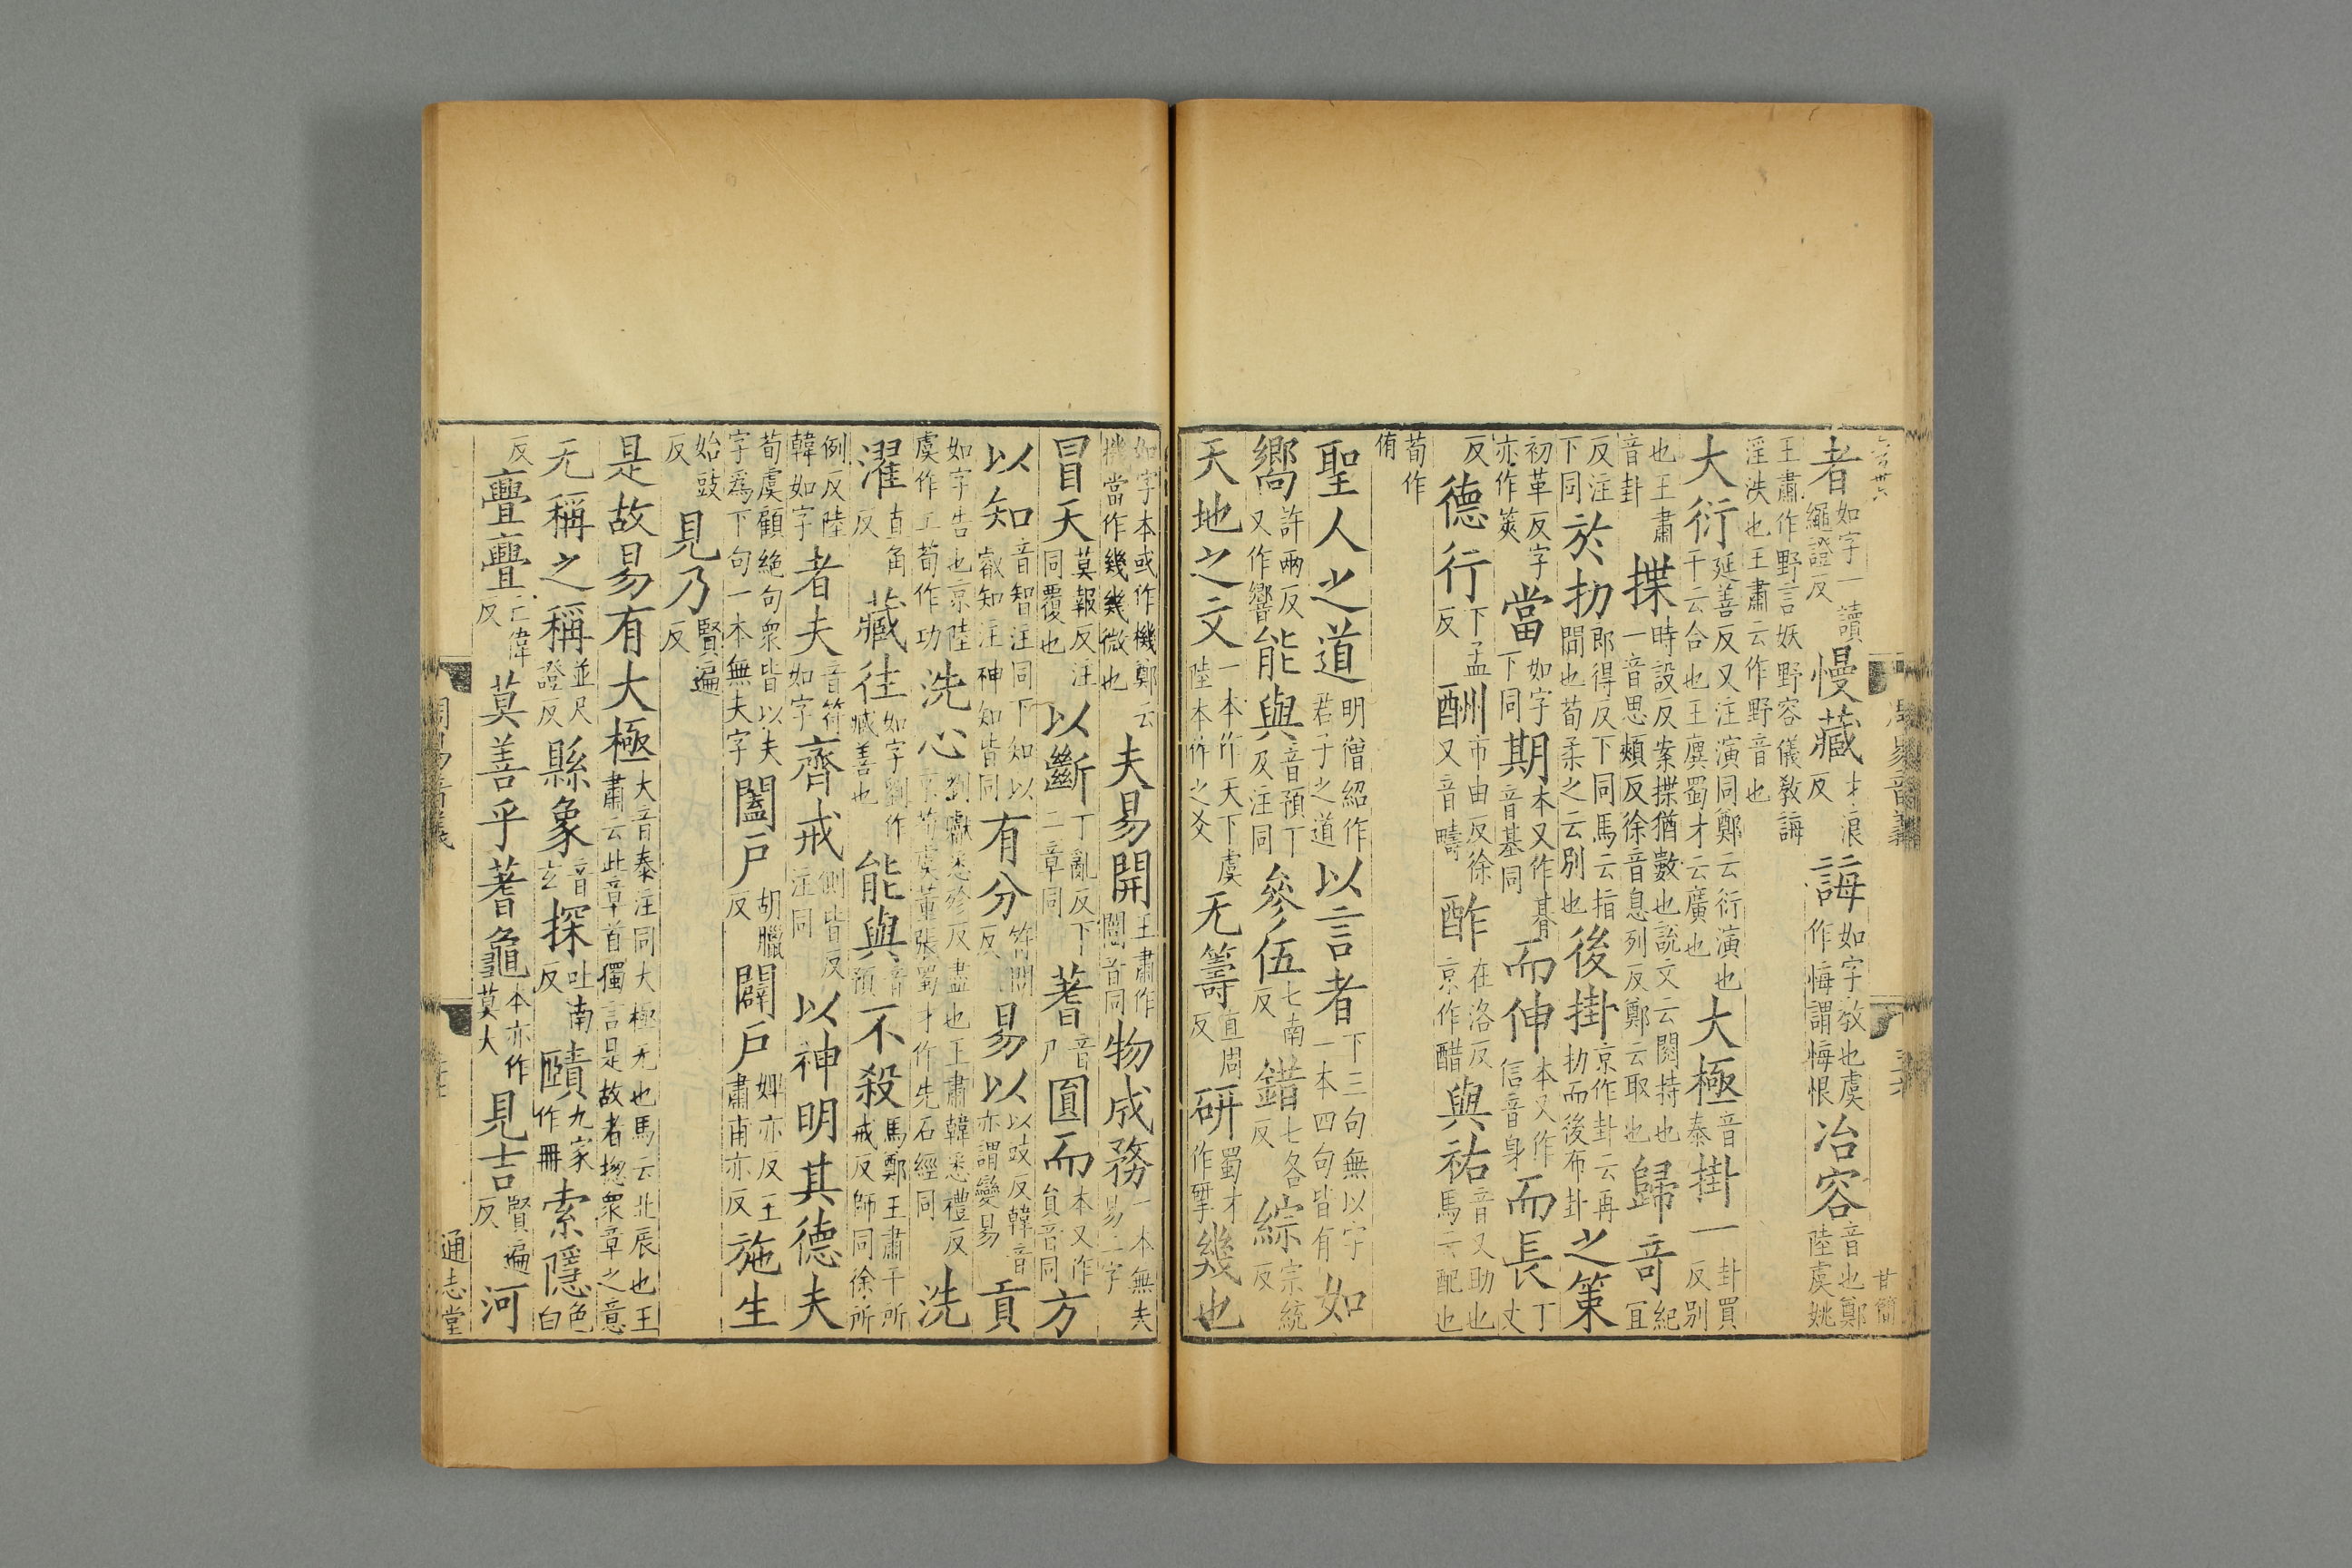 者如字一讀繩證反慢藏才浪反誨如字教也虞作悔謂悔恨冶容音也鄭陸虞姚
王肅作野言妖野容儀教誨淫泆也王肅云作野音也
大衍延善反又注演同鄭云衍演也干云合也王廙蜀才云廣也大極音泰掛一卦買反別
也王肅音卦揲時設反案揲猶數也說文云閱持也一音思頰反徐音息列反鄭云取也歸奇紀宜
反注下同於扐郎得反下同馬云指間也荀柔之云別也後掛京作卦云再扐而後布卦之策
初革反字亦作筴當如字下同期本又作朞音基同而伸本又作信音身而長丁丈
反德行下孟反酬市由反徐又音疇酢在洛反京作醋與祐音又助也馬云配也
荀作侑
聖人之道明僧紹作君子之道以言者下三句無以字一本四句皆有如
嚮許兩反又作響能與音預丁及注同參伍七南反錯七各反綜宗統反
天地之文一本作天下虞陸本作之爻无籌直周反研蜀才作揅幾也
如字本或作機鄭云機當作幾幾微也夫易開王肅作闓音同物成務一本無夫易二字
冒天莫報反注同覆也以斷丁亂反下二章同蓍音尸圓而本又作員音同方
以知音智注同下知以叡知注神知皆同有分符問反易以以豉反韓音亦謂變易貢
如字告也京陸虞作工荀作功洗心劉瓛悉殄反盡也王肅韓悉禮反京荀虞董張蜀才作先石經同洗
濯直角反藏往如字劉作臧善也能與音預不殺馬鄭王肅干所戒反師同徐所
例反陸韓如字者夫音符如字齊戒側皆反注同以神明其德夫
荀虞顧絕句衆皆以夫字爲下句一本無夫字闔戶胡臘反闢戶婢亦反王肅甫亦反施生
始豉反見乃賢遍反
是故易有大極大音泰注同大極无也馬云北辰也王肅云此章首獨言是故者揔衆章之意
无稱之稱並尺證反縣象音玄探吐南反賾九家作冊索隱色白
反亹亹亡偉反莫善乎蓍龜本亦作莫大見吉賢遍反河
通志堂